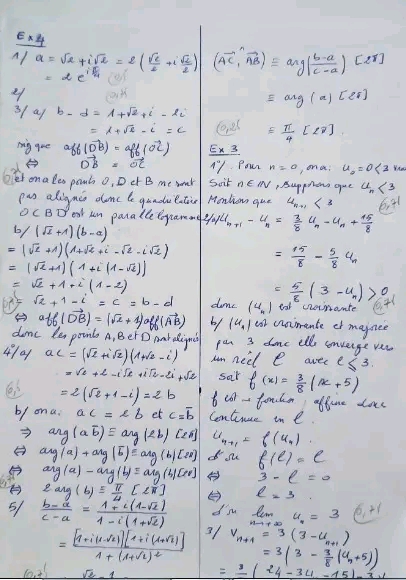 Ex 4
1/ a = √2 + i√2 = 2(√2/2 + i√2/2)
= 2e^{iπ/4}
2/
3/ a/ b - d = 1 + √2 + i - 2i
= 1 + √2 - i = c
sig que aff(DB) = aff(OC)
⇔ DB = OC
et on a les points O, D et B ne sont
pas alignés donc le quadrilatère
OCBD est un parallélogramme
b/ (√2+1)(b-a)
= (√2+1)(1+√2+i-√2-i√2)
= (√2+1)(1+i(1-√2))
= √2+1+i(1-2)
= √2+1-i = c = b-d
⇔ aff(DB) = (√2+1)aff(AB)
donc les points A, B et D sont alignés
4°/a/ ac = (√2+i√2)(1+√2-i)
= √2+2-i√2+i√2+2i+√2
= 2(√2+1+i) = 2b
b/ on a: ac = 2b et c = b̄
⇒ arg(a b̄) ≡ arg(2b) [2π]
⇔ arg(a) + arg(b̄) ≡ arg(b) [2π]
⇔ arg(a) - arg(b) ≡ arg(b) [2π]
⇔ 2arg(b) ≡ π/4 [2π]
5/ (b-a)/(c-a) = (1+i(1-√2))/(1-i(1+√2))
= [1+i(1-√2)][1+i(1+√2)]/(1+(1+√2)²)
(AC, AB) ≡ arg((b-a)/(c-a)) [2π]
≡ arg(a) [2π]
≡ π/4 [2π].
Ex 3
1°/ Pour n = 0, on a: U₀ = 0 < 3 vrai
Soit n ∈ IN, supposons que Uₙ < 3
Montrons que Uₙ₊₁ < 3
2/a/ Uₙ₊₁ - Uₙ = 3/8 Uₙ - Uₙ + 15/8
= 15/8 - 5/8 Uₙ
= 5/8 (3 - Uₙ) > 0
donc (Uₙ) est croissante
b/ (Uₙ) est croissante et majorée
par 3 donc elle converge vers
un réel l avec l ≤ 3.
Soit f(x) = 3/8 (x+5)
f est fonction affine donc
continue en l.
Uₙ₊₁ = f(Uₙ).
d'où f(l) = l
⇔ 3 - l = 0
⇔ l = 3.
d'où lim n→+∞ Uₙ = 3
3/ Vₙ₊₁ = 3(3-Uₙ₊₁)
= 3(3 - 3/8(Uₙ+5))